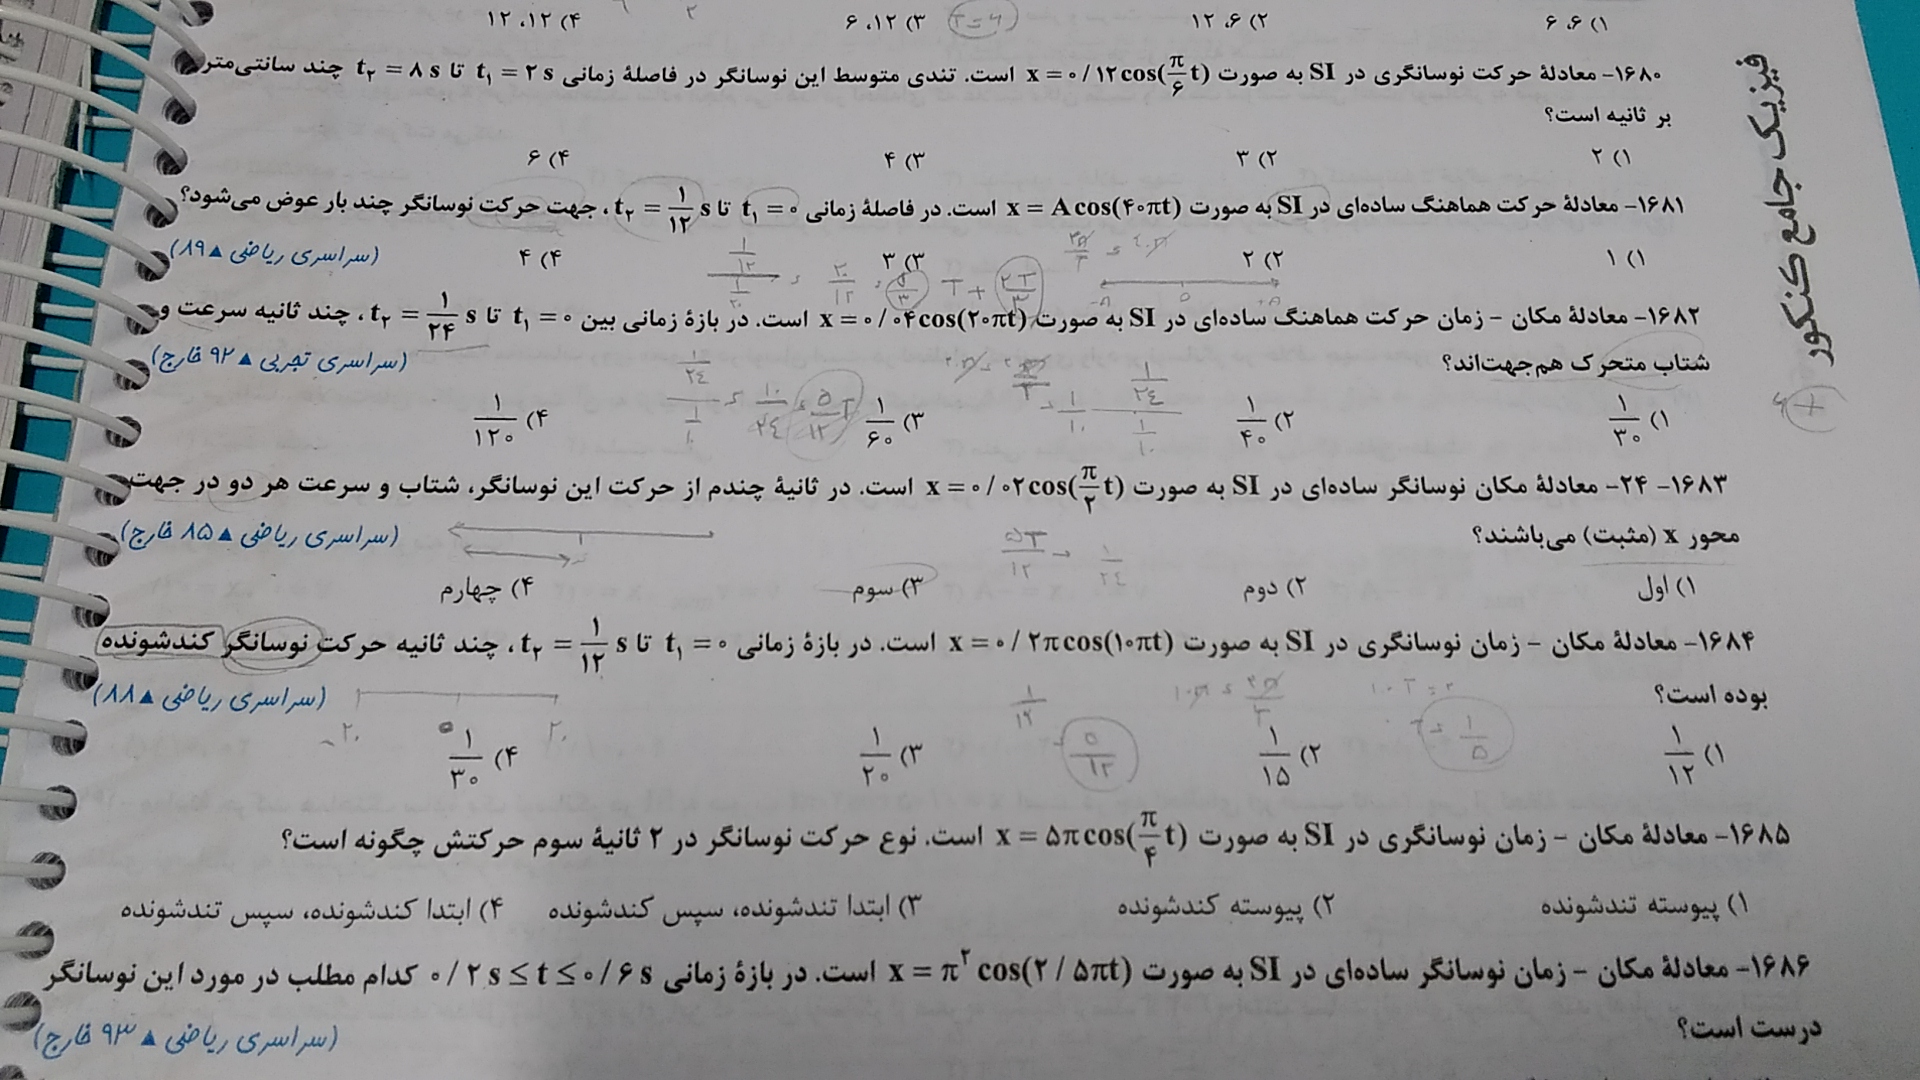 ۱) ۶، ۶ ۲) ۶، ۱۲ ۳) ۱۲، ۶ T=۶ ۴) ۱۲، ۱۲
۱۶۸۰- معادلهٔ حرکت نوسانگری در SI به صورت x = ۰/۱۲cos(π/۶ t) است. تندی متوسط این نوسانگر در فاصلهٔ زمانی t₁ = ۲s تا t₂ = ۸s چند سانتی‌متر
بر ثانیه است؟
۱) ۲ ۲) ۳ ۳) ۴ ۴) ۶
۱۶۸۱- معادلهٔ حرکت هماهنگ ساده‌ای در SI به صورت x = A cos(۴۰πt) است. در فاصلهٔ زمانی t₁ = ۰ تا t₂ = ۱/۱۲ s، جهت حرکت نوسانگر چند بار عوض می‌شود؟
۱) ۱ ۲) ۲ ۳) ۳ ۴) ۴ (سراسری ریاضی ▲ ۸۹)
۱۶۸۲- معادلهٔ مکان - زمان حرکت هماهنگ ساده‌ای در SI به صورت x = ۰/۰۴cos(۲۰πt) است. در بازهٔ زمانی بین t₁ = ۰ تا t₂ = ۱/۲۴ s، چند ثانیه سرعت و
شتاب متحرک هم‌جهت‌اند؟ (سراسری تجربی ▲ ۹۲ خارج)
۱) ۱/۳۰ ۲) ۱/۴۰ ۳) ۱/۶۰ ۴) ۱/۱۲۰
۱۶۸۳- ۲۴- معادلهٔ مکان نوسانگر ساده‌ای در SI به صورت x = ۰/۰۲cos(π/۲ t) است. در ثانیهٔ چندم از حرکت این نوسانگر، شتاب و سرعت هر دو در جهت
محور x (مثبت) می‌باشند؟ (سراسری ریاضی ▲ ۸۵ خارج)
۱) اول ۲) دوم ۳) سوم ۴) چهارم
۱۶۸۴- معادلهٔ مکان - زمان نوسانگری در SI به صورت x = ۰/۲πcos(۱۰πt) است. در بازهٔ زمانی t₁ = ۰ تا t₂ = ۱/۱۲ s، چند ثانیه حرکت نوسانگر کندشونده
بوده است؟ (سراسری ریاضی ▲ ۸۸)
۱) ۱/۱۲ ۲) ۱/۱۵ ۳) ۱/۲۰ ۴) ۱/۳۰
۱۶۸۵- معادلهٔ مکان - زمان نوسانگری در SI به صورت x = ۵πcos(π/۴ t) است. نوع حرکت نوسانگر در ۲ ثانیهٔ سوم حرکتش چگونه است؟
۱) پیوسته تندشونده ۲) پیوسته کندشونده ۳) ابتدا تندشونده، سپس کندشونده ۴) ابتدا کندشونده، سپس تندشونده
۱۶۸۶- معادلهٔ مکان - زمان نوسانگر ساده‌ای در SI به صورت x = π² cos(۲/۵πt) است. در بازهٔ زمانی ۰/۲s ≤ t ≤ ۰/۶s کدام مطلب در مورد این نوسانگر
درست است؟ (سراسری ریاضی ▲ ۹۳ خارج)
فیزیک جامع کنکور